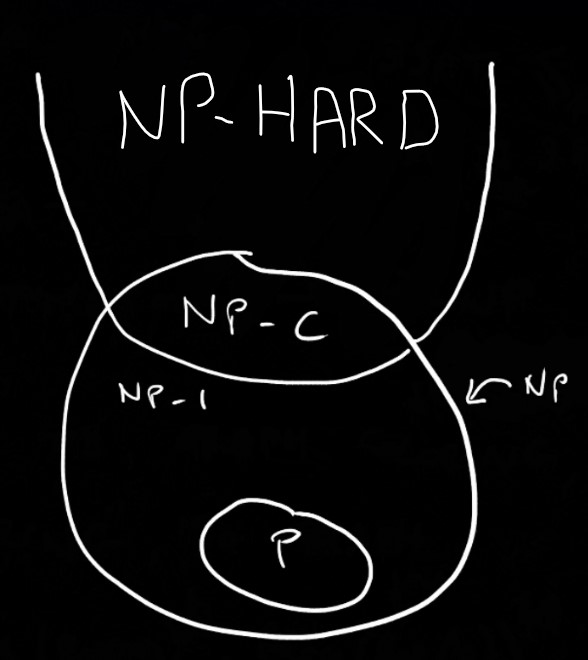 NP-HARD
NP-C
NP-I
NP
P